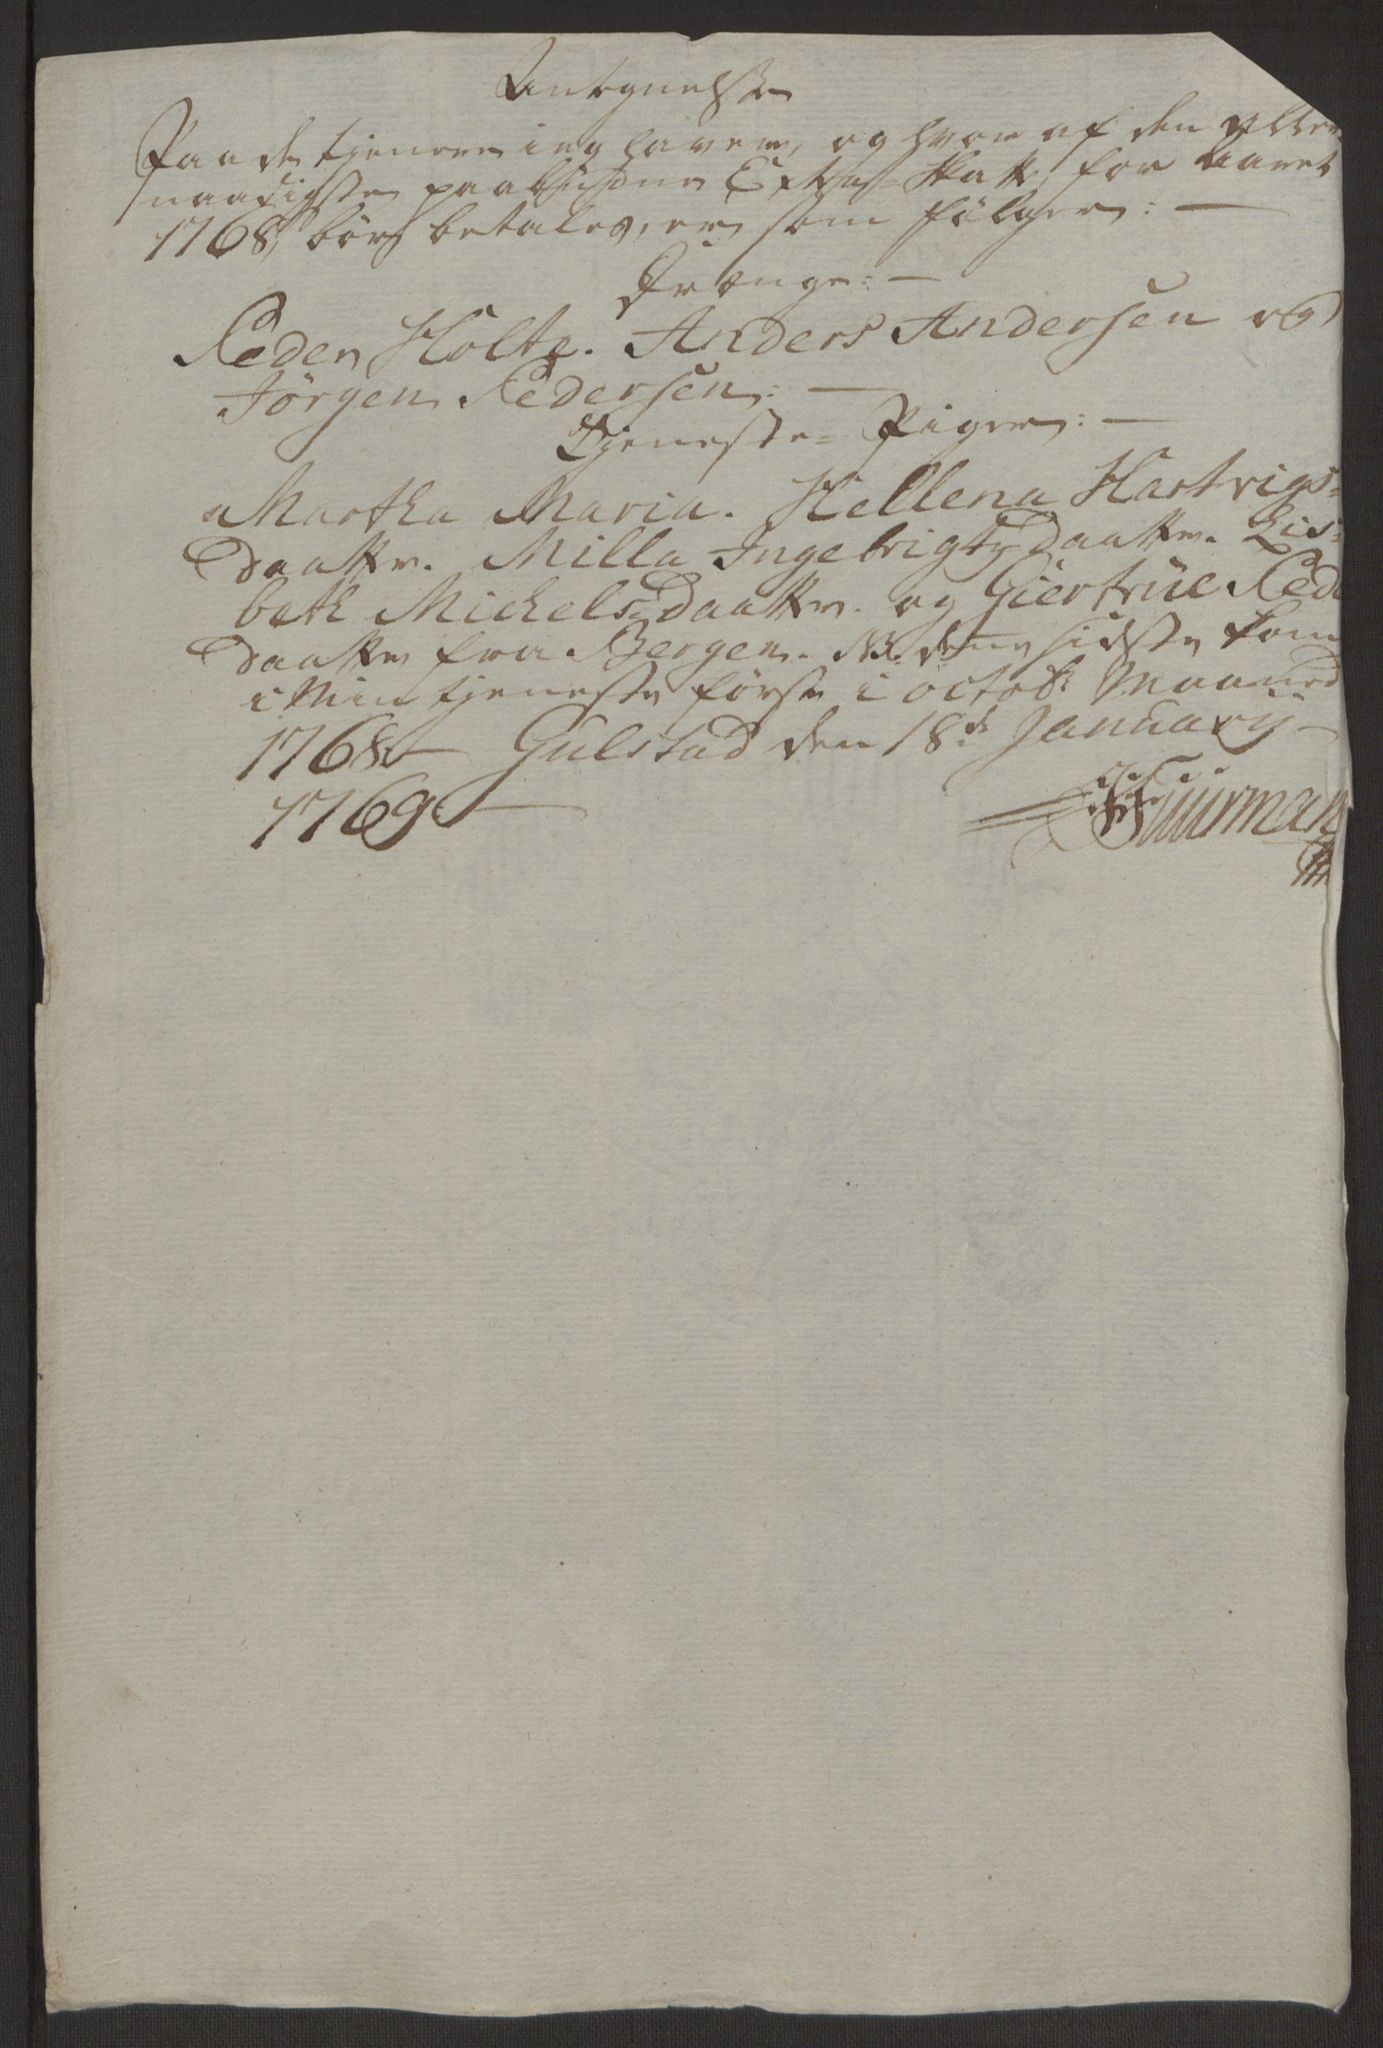 Antegnelse
Paa de tjenere ieg haver, og hvor af den aller
naadigste paabudne Extra-Skatt for Aaret
1768, bör betales, er som fölger: —
Drænge: —
Peder Holte. Anders Andersen og
Jörgen Pedersen: —
Tjeneste-Piger: —
Martha Maria. Hellena Hartvigs-
Daatter. Milla Ingebrigts Daatter. Lis-
beth Michels Daatter. og Giertrüe Ped
Daatter fra Bergen. NB. denne sidste kom
i Min tjeneste først i octobr Maaned
1768 — Gulstad den 18de January —
1769 —
Fuurman